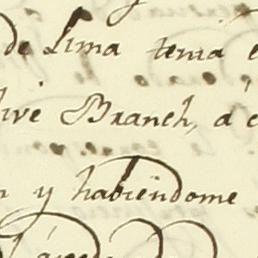 de Lima tenia
live Branch, á
y habiendome